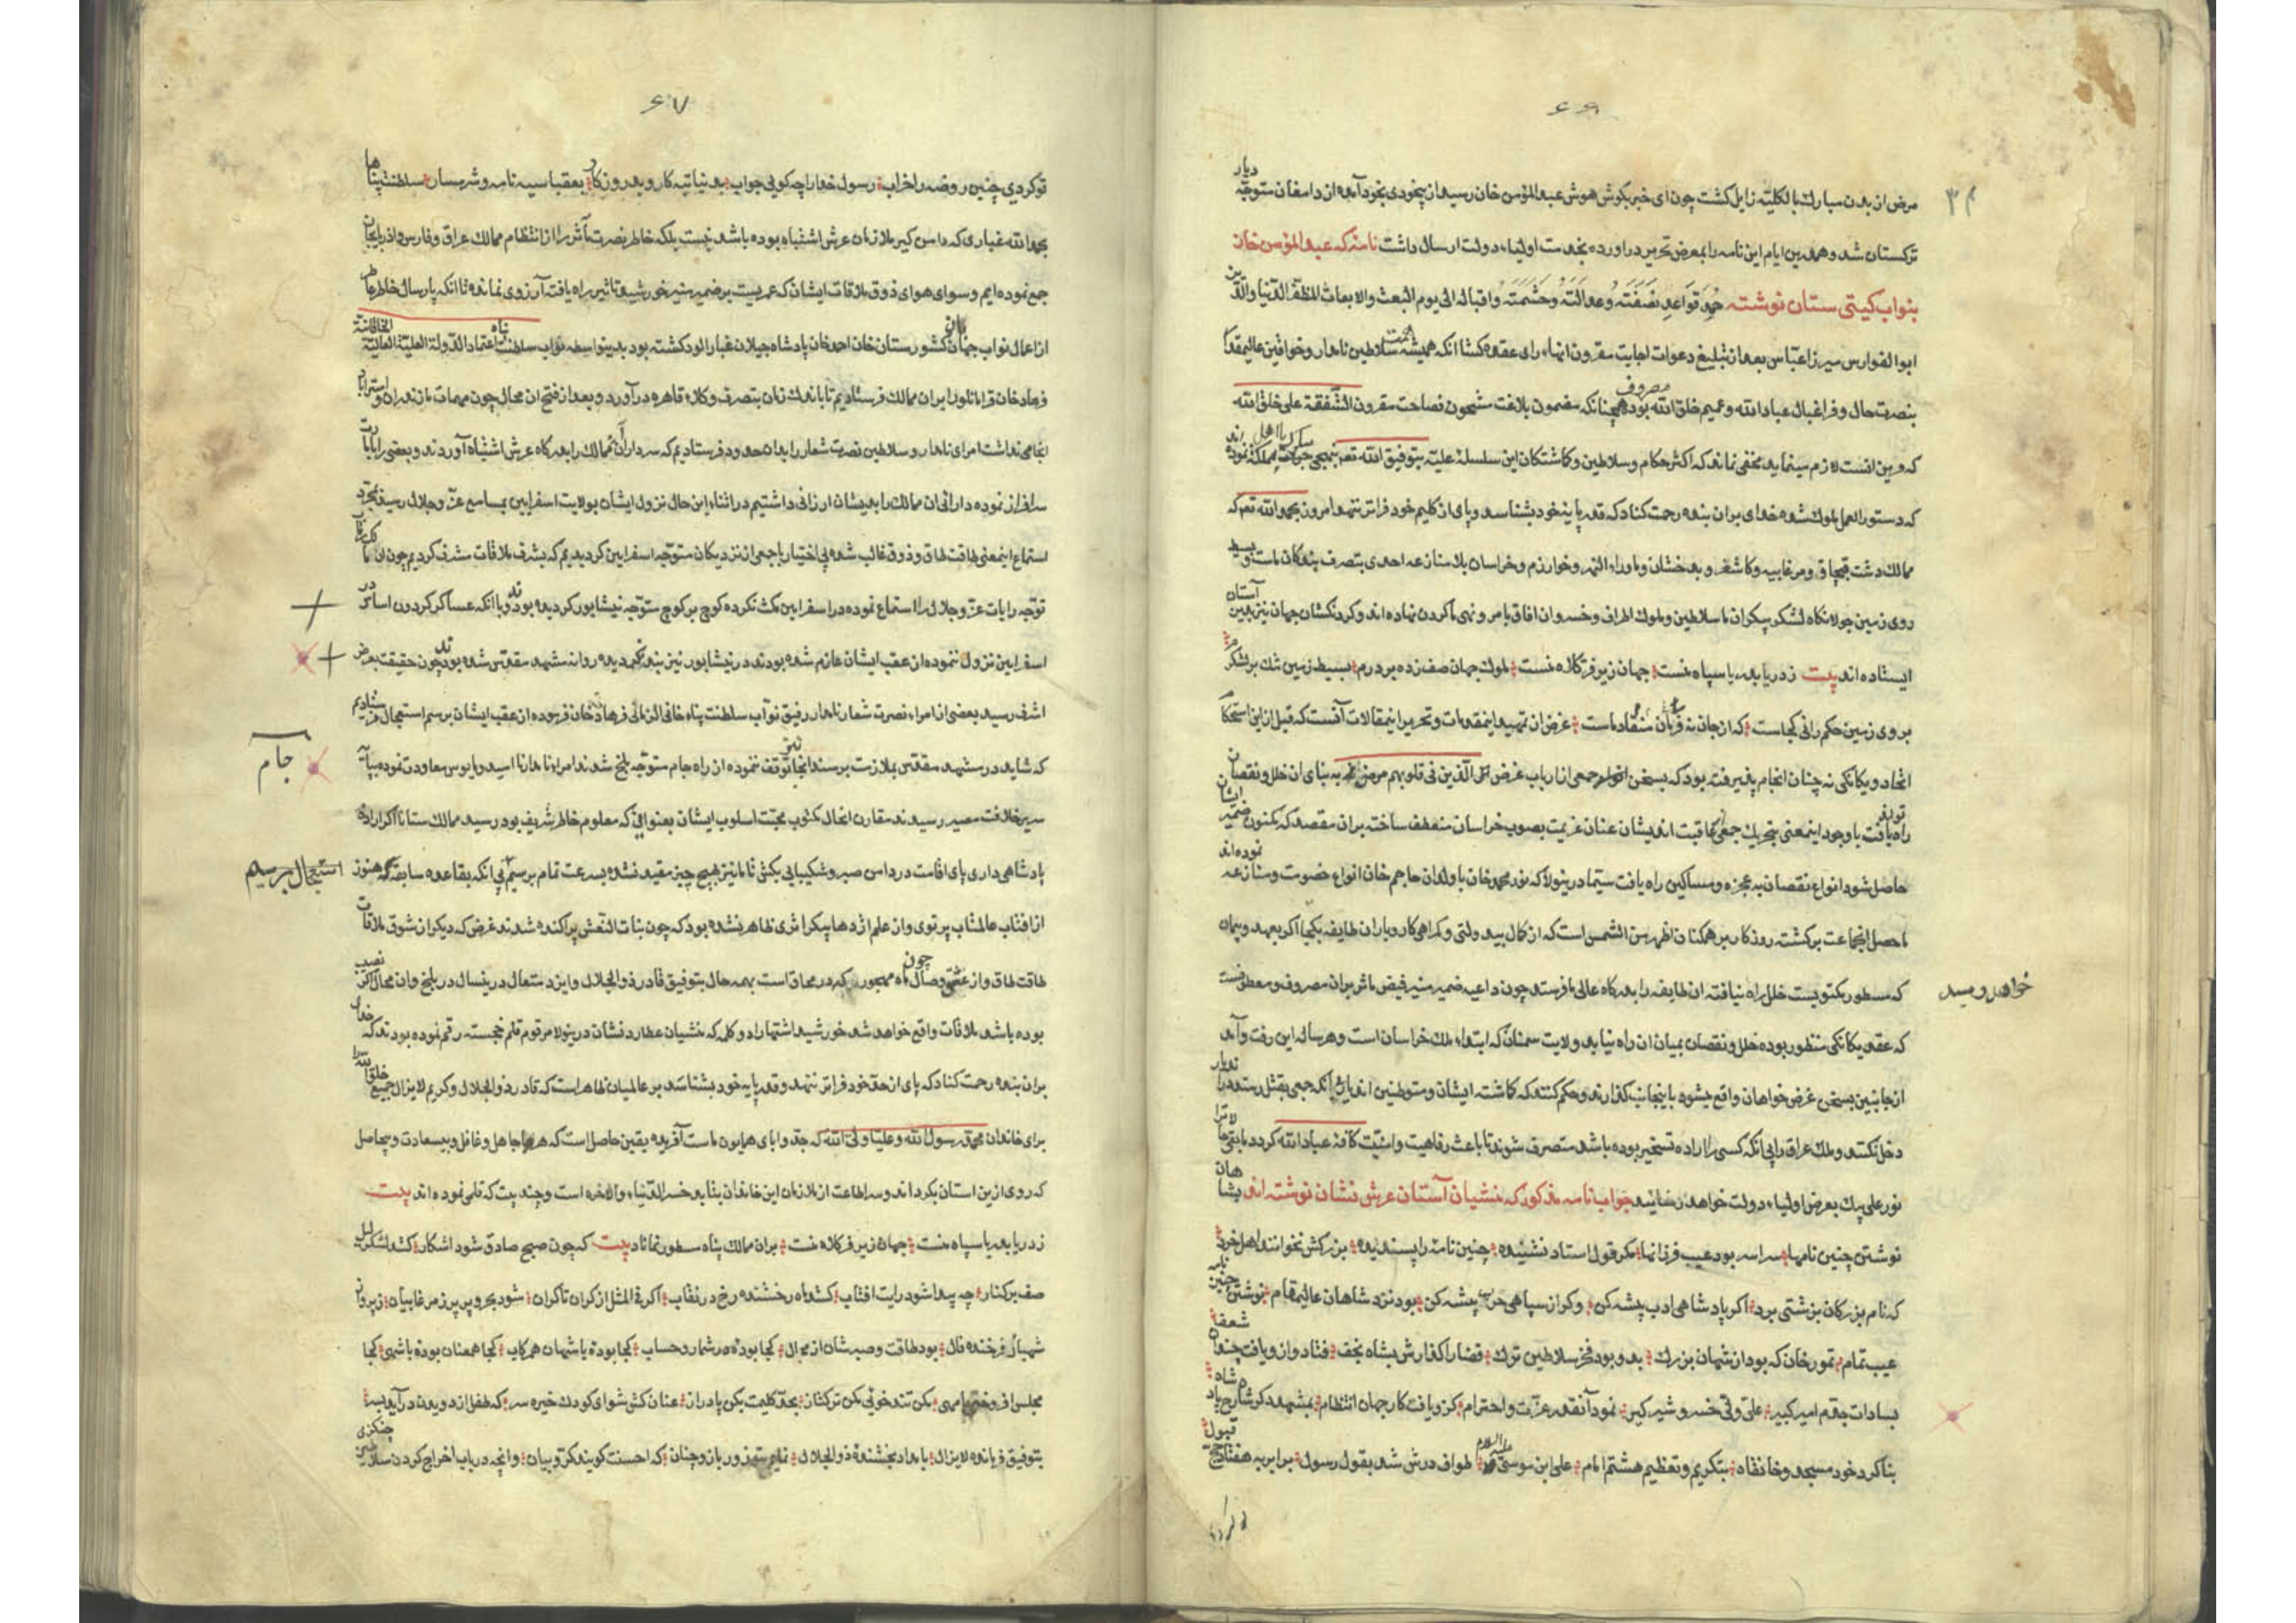 ۶۶
مرض از بدن مبارك بالكلیّه زایل كشت چون ای خبر بكوش هوش عبدالمؤمن خان رسید از بیخودی بخود آمده از دامغان متوجّه دیار
تركستان شد و همدرین ایام این نامه را بمعرض تحریر در اورده بخدمت اولیاء دولت ارسال داشت نامهٔ كه عبدالمؤمن خان
بنواب كیتی ستان نوشته قواعد نصفته وعدالته وحشمته واقباله الی یوم البعث والابعاث المظفّر الدّنیا والدّین
ابو الفوارس میرزا عبّاس بعد از تبلیغ دعوات اجابت مقرون انهاء رای عقده كشا انكه همیشه همّت سلاطین نامدار و خواقین عالیمقدار
بنصرت حال و فراغبال عباد الله و عمیم خلق الله مصروف بوده همچنانكه مضمون بلاغت مشحون فصاحت مقرون الشّفقة علی خلق الله
كه قرین انست لازم مینماید مخفی نماند كه اكثر حكام و سلاطین و كاشتكان این سلسلهٔ علیّه بتوفیق الله تعم
كه دستور العمل ملوك شده خدای بران بنده رحمت كناد كه قدر پایهٔ خود بشناسد و پای از كلیم خود فراتر ننهد امروز بحمدالله تعم كه
ممالك دشت قبچاق و مرغابیه و كاشغر و بدخشان و ماوراء النهر و خوارزم و خراسان بلا منازعه احدی بتصرف بندكان ماست و بسیط
روی زمین جولانكاه لشكر بیكران ما سلاطین و ملوك اطراف و خسروان افاق بامر و نهی ما كردن نهاده اند و كردنكشان جهان نیز بدین آستان
ایستاده اند بیت ز دریا بدریا سپاه منست جهان زیر فرّ كلاه منست ملوك جهان صف زده بر درم بسیط زمین تنك بر لشكرم
بر وی زمین حكم رانی كجاست كه از جان نه فرمان منقاد ماست غرض از تمهید اینمقدمات و تحریر اینمقالات آنست كه قبل ازین استحكام
اتّحاد و یكانكی نه چنان انجام پذیرفته بود كه بسخن جمعی از ارباب غرض الّذین فی قلوبهم مرض به بنای ان خلل و نقصان
راه یافت با وجود اینمعنی بتحریك جمعی كما قبت اندیشان عنان عزیمت بصوب خراسان منعطف ساخته بران مقصد كه مكنون ضمیر ایشان
حاصل شود انواع نقصان به عجزه و مساكین راه یافت سیّما درینولا كه نور محمد خان با ولدان حاجم خان انواع خصومت و منازعه نموده اند
ما حصل انجماعت بركشته روزكار بر همكنان اظهر من الشمس است كه از كمال بیدولتی و كمراهی كاروباران طایفه بكجا اكر بعهد و پیمان
كه مسطور مكتوبیست خلل راه نیافته ان طایفه را بدركاه عالی ما فرستد چون داعیه ضمیر منیر فیض ماثر بران مصروف و معطوفست
خواهد رسید
كه عقد یكانكی منظور بوده خلل و نقصان بمیان ان راه نیابد ولایت سمنان كه ابتداء ملك خراسان است و هر ساله این رفت و آمد
ازجانبین بسخن غرض خواهان واقع میشود باینجانب كذارند و حكم كنند كه كماشته ایشان و متوطنین
دخل نكند و ملك عراق را بی انكه كسی را اراده تسخیر بوده باشد متصرف شوند تا باعث رفاهیت و امنیّت كافّهٔ عباد الله كردد
نور علی بیك بعرض اولیاء دولت خواهد رسانید جواب نامه مذكور كه منشیان آستان عرش نشان نوشته اند
نوشتن چنین نامها سراسر بود عیب فرزانها مكر قول استاد نشنیده چنین نامه را پسندیده بزركش نخوانند اهل خرد
كه نام بزركان بزشتی برد اكر پادشاهی ادب پیشه كن وكر از سپاهی حرب پیشه كن بود نزد شاهان عالیمقام نوشتن چنین نامه
عیب تمام تمور خان كه بود از شهان بزرك بدو بود فخر سلاطین ترك قضا را كذارش بشاه نجف فتاد و ازو یافت چندان شعف
بسادات جدّم امیر كبیر علی ولی خسرو شیر كیر نمود آنقدر عزت و احترام كزو یافت كار جهان انتظام بمشهد كه شاه
بنا كرد خود مسجد و خانقاه بتكریم و تعظیم هشتم امام علی ابن موسی علیه السلام طواف درش شد بقول رسول برابر به هفتاد حج قبول
۶۷
تو كردی چنین روضه را خراب رسول خدا را چه كویی جواب بدنیا تبه كار و بد روزكار بعقبا سیه نامه و شرمسار سلطنت پناها
بحمدالله غباری كه دامن كیر ملازمان عرش اشتباه بوده باشد نیست بلكه خاطر نصرت مآثر را از انتظام ممالك عراق و فارس و اذربایجان
جمع نموده ایم و سوای هوای ذوق ملاقات ایشان كه عمریست بر ضمیر منیر خورشید تاثیر راه یافته آرزوی نمانده تا انكه پارسال خاطر ما
از اعمال نواب جهان بان كشورستان خان احمد خان پادشاه جیلان غبار الود كشته بود بدینواسطه نوّاب سلطنت پناه اعتماد الدّولة العلیّة العالیّة الخاقانیّة
فرهاد خان قرامانلو را بران ممالك فرستادیم تا باندك زمان بتصرف وكلاء قاهره درآورد و بعد از فتح ان محال چون مهمات مازندران و استراباد
انجامی نداشت امرای نامدار و سلاطین نصرت شعار را بدان حدود فرستادیم كه سرداران آن ممالك را بدركاه عرش اشتباه آوردند و بعضی را
سرافراز نموده دارائی ان ممالك را بدیشان ارزانی داشتیم در اثناء این حال نزول ایشان بولایت اسفراین بمسامع عزّ و جلال رسید بمجرّد
استماع اینمعنی طاقت طاق و ذوق غالب شده بی اختیار با جمعی از نزدیكان متوجّه اسفراین كردیدیم كه بشرف ملاقات مشرف كردیم چون ان
توجّه رایات عزّ و جلال را استماع نموده در اسفراین مكث نكرده كوچ بر كوچ متوجّه نیشابور كردیده بودند و با انكه عساكر كردون اساس در
اسفراین نزول ننموده از عقب ایشان عازم شده بودند در نیشابور نیز بند نكردیده روانه مشهد مقدّس شده بودند چون حقیقت بعرض
اشرف رسید بعضی از امراء نصرت شعار نامدار رفیق نوّاب سلطنت پناه خانی الزمانی فرهاد خان فرموده از عقب ایشان برسم استعجال فرستادیم
كه شاید در مشهد مقدّس بملازمت برسند انجا نیز توقّف ننموده از راه جام متوجّه بلخ شدند امراء نامدار نا امید و مایوس معاودت نموده
جام
سریر خلافت مصیر رسیدند مقارن انحال مكتوب محبّت اسلوب ایشان بعنوانی كه معلوم خاطر شریف بود رسید ممالك ستانا اكر اراده
پادشاهی داری پای اقامت در دامن صبر و شكیبایی بكش تا ما نیز بهیچ چیز مقید نشده بسرعت تمام برسیم نی انكه بقاعده سابقه هنوز
استعجال برسیم
از افتاب عالمتاب پرتوی و از علم اژدها پیكر اثری ظاهر نشده بود كه چون بنات النّعش پراكنده شدند غرض كه دیكر از شوق ملاقات
طاقت طاق و از عشق وصال چون ماه مهجور كه در محاق است بهمه حال بتوفیق قادر ذو الجلال و ایزد متعال درینسال در بلخ و ان محال اكر نصیب
بوده باشد ملاقات واقع خواهد شد خورشید اشتهارا دو كلمه كه منشیان عطارد نشان درینولا مرقوم قلم خجسته رقم نموده بودند كه خدای
بران بنده رحمت كناد كه پای از حقّ خود فراتر ننهد و قدر پایه خود بشناسد بر عالمیان ظاهر است كه قادر ذو الجلال و كریم لا یزال جمیع خلق الله را
برای خاندان محمّد رسول الله و علیّا ولی الله كه جدّ و ابای همایون ماست آفریده یقین حاصل است كه هر جاهل و غافل و بیسعادت و بیحاصل
كه روی ازین استان بكرداند و سر اطاعت از ملازمان این خاندان بتابد خسر الدّنیاء والاخره است و چند بیت كه قلمی نموده اند بیت
ز دریا بدریا سپاه منست جهان زیر فرّ كلاه منست بران ممالك پناه مسطور نماناد بیت كه چون صبح صادق شود اشكار كشد لشكر لیل
صف بر كنار چه پیدا شود رایت افتاب كشد ماه رخشنده رخ در نقاب اكر فی المثل از كران تا كران شود بحر و بر پر ز مرغابیان ز پرواز
شهباز فرخنده فال بود طاقت و صبر شان از محال كجا بوده در شمار و حساب كجا بودهٔ با شهان همركاب كجا همعنان بودهٔ با شهی كجا
مجلس افروختی با مهی مكن تند خوئی مكن تركتاز بحدّ كلیمت بكن پا دراز عنان كش شو ای كودك خیره سر كه طفل از دویدن در آید بسر
بتوفیق فرمانده لایزال بامداد بخشندهٔ ذوالجلال نمایم ستم زور بازو چنان كه احسنت كویند كرّوبیان و انچه در باب اخراج كردن سلاطین چنكزی